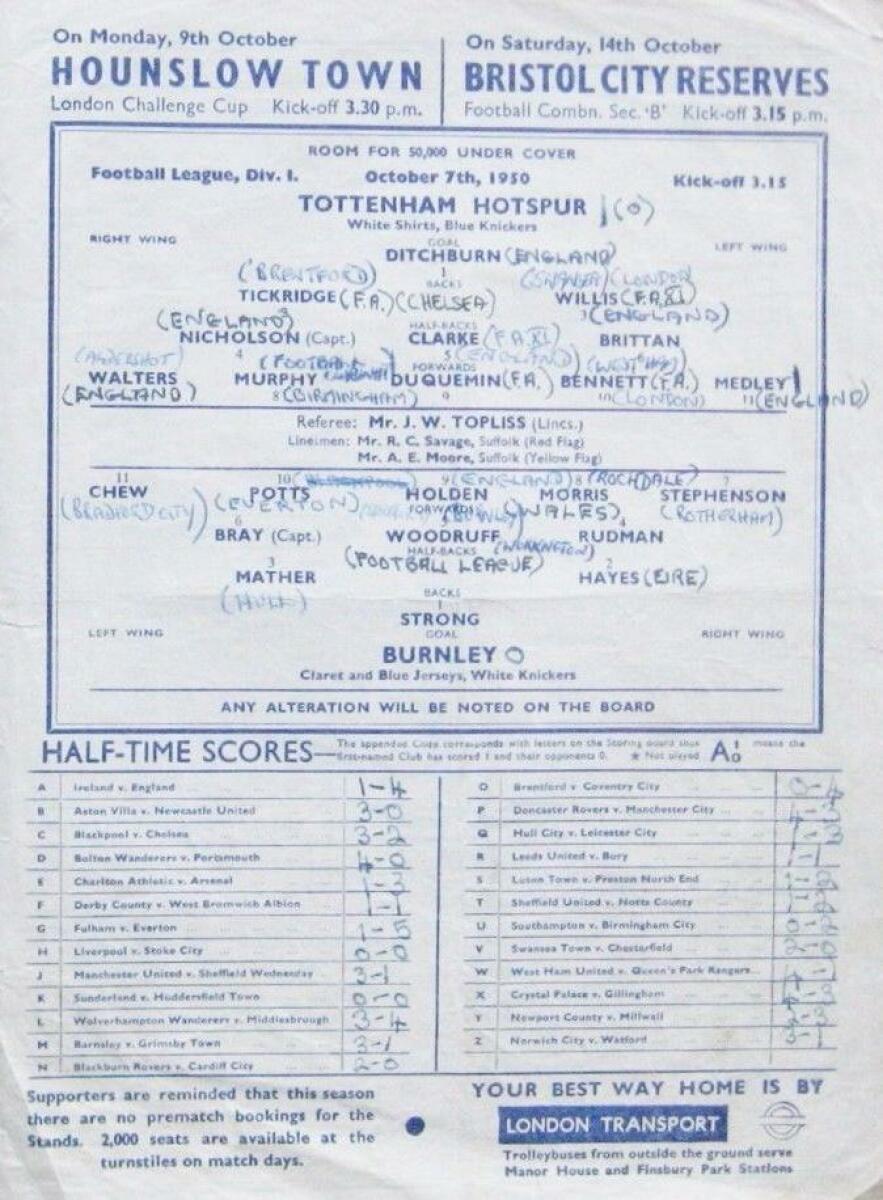 On Monday, 9th October
HOUNSLOW TOWN
London Challenge Cup Kick-off 3.30 p.m.
On Saturday, 14th October
BRISTOL CITY RESERVES
Football Combn. Sec. 'B' Kick-off 3.15 p.m.
ROOM FOR 50,000 UNDER COVER
Football League, Div. I. October 7th, 1950 Kick-off 3.15
TOTTENHAM HOTSPUR 1 (0)
White Shirts, Blue Knickers
RIGHT WING GOAL LEFT WING
DITCHBURN (ENGLAND)
1
(BRENTFORD) BACKS (SWANSEA) (LONDON)
TICKRIDGE (F.A.) (CHELSEA) WILLIS (F.A. XI)
(ENGLAND) 3 (ENGLAND)
HALF-BACKS
NICHOLSON (Capt.) CLARKE (F.A XI) BRITTAN
4 5 (ENGLAND)
(ALDERSHOT) (FOOTBALL FORWARDS (WEST HAM)
WALTERS MURPHY DUQUEMIN (F.A.) BENNETT (F.A.) MEDLEY 1
(ENGLAND) 8 (BIRMINGHAM) 9 10 (LONDON) 11 (ENGLAND)
Referee: Mr. J. W. TOPLISS (Lincs.)
Linesmen: Mr. R. C. Savage, Suffolk (Red Flag)
Mr. A. E. Moore, Suffolk (Yellow Flag)
11 10 9 (ENGLAND) 8 (ROCHDALE) 7
CHEW POTTS HOLDEN MORRIS STEPHENSON
(BRADFORD CITY) (EVERTON) FORWARDS (WALES) (ROTHERHAM)
6 4
BRAY (Capt.) WOODRUFF RUDMAN
HALF-BACKS (WORKINGTON)
(FOOTBALL LEAGUE)
3 2
MATHER HAYES (EIRE)
(HULL) BACKS
1
STRONG
LEFT WING GOAL RIGHT WING
BURNLEY 0
Claret and Blue Jerseys, White Knickers
ANY ALTERATION WILL BE NOTED ON THE BOARD
HALF-TIME SCORES—The appended Code corresponds with letters on the Scoring board thus A 1 0 means the
first-named Club has scored 1 and their opponents 0. ★ Not played
A Ireland v. England 1-4
B Aston Villa v. Newcastle United 3-0
C Blackpool v. Chelsea 3-2
D Bolton Wanderers v. Portsmouth 4-0
E Charlton Athletic v. Arsenal 1-3
F Derby County v. West Bromwich Albion 1-1
G Fulham v. Everton 1-5
H Liverpool v. Stoke City 0-0
J Manchester United v. Sheffield Wednesday 3-1
K Sunderland v. Huddersfield Town 0-0
L Wolverhampton Wanderers v. Middlesbrough 3-4
M Barnsley v. Grimsby Town 3-1
N Blackburn Rovers v. Cardiff City 2-0
O Brentford v. Coventry City 0-4
P Doncaster Rovers v. Manchester City 4-3
Q Hull City v. Leicester City 1-3
R Leeds United v. Bury 1-1
S Luton Town v. Preston North End
T Sheffield United v. Notts County 1-2
U Southampton v. Birmingham City 0-2
V Swansea Town v. Chesterfield 2-0
W West Ham United v. Queen's Park Rangers 4-1
X Crystal Palace v. Gillingham 4-3
Y Newport County v. Millwall
Z Norwich City v. Watford 3-1
Supporters are reminded that this season
there are no prematch bookings for the
Stands. 2,000 seats are available at the
turnstiles on match days.
YOUR BEST WAY HOME IS BY
LONDON TRANSPORT
Trolleybuses from outside the ground serve
Manor House and Finsbury Park Stations